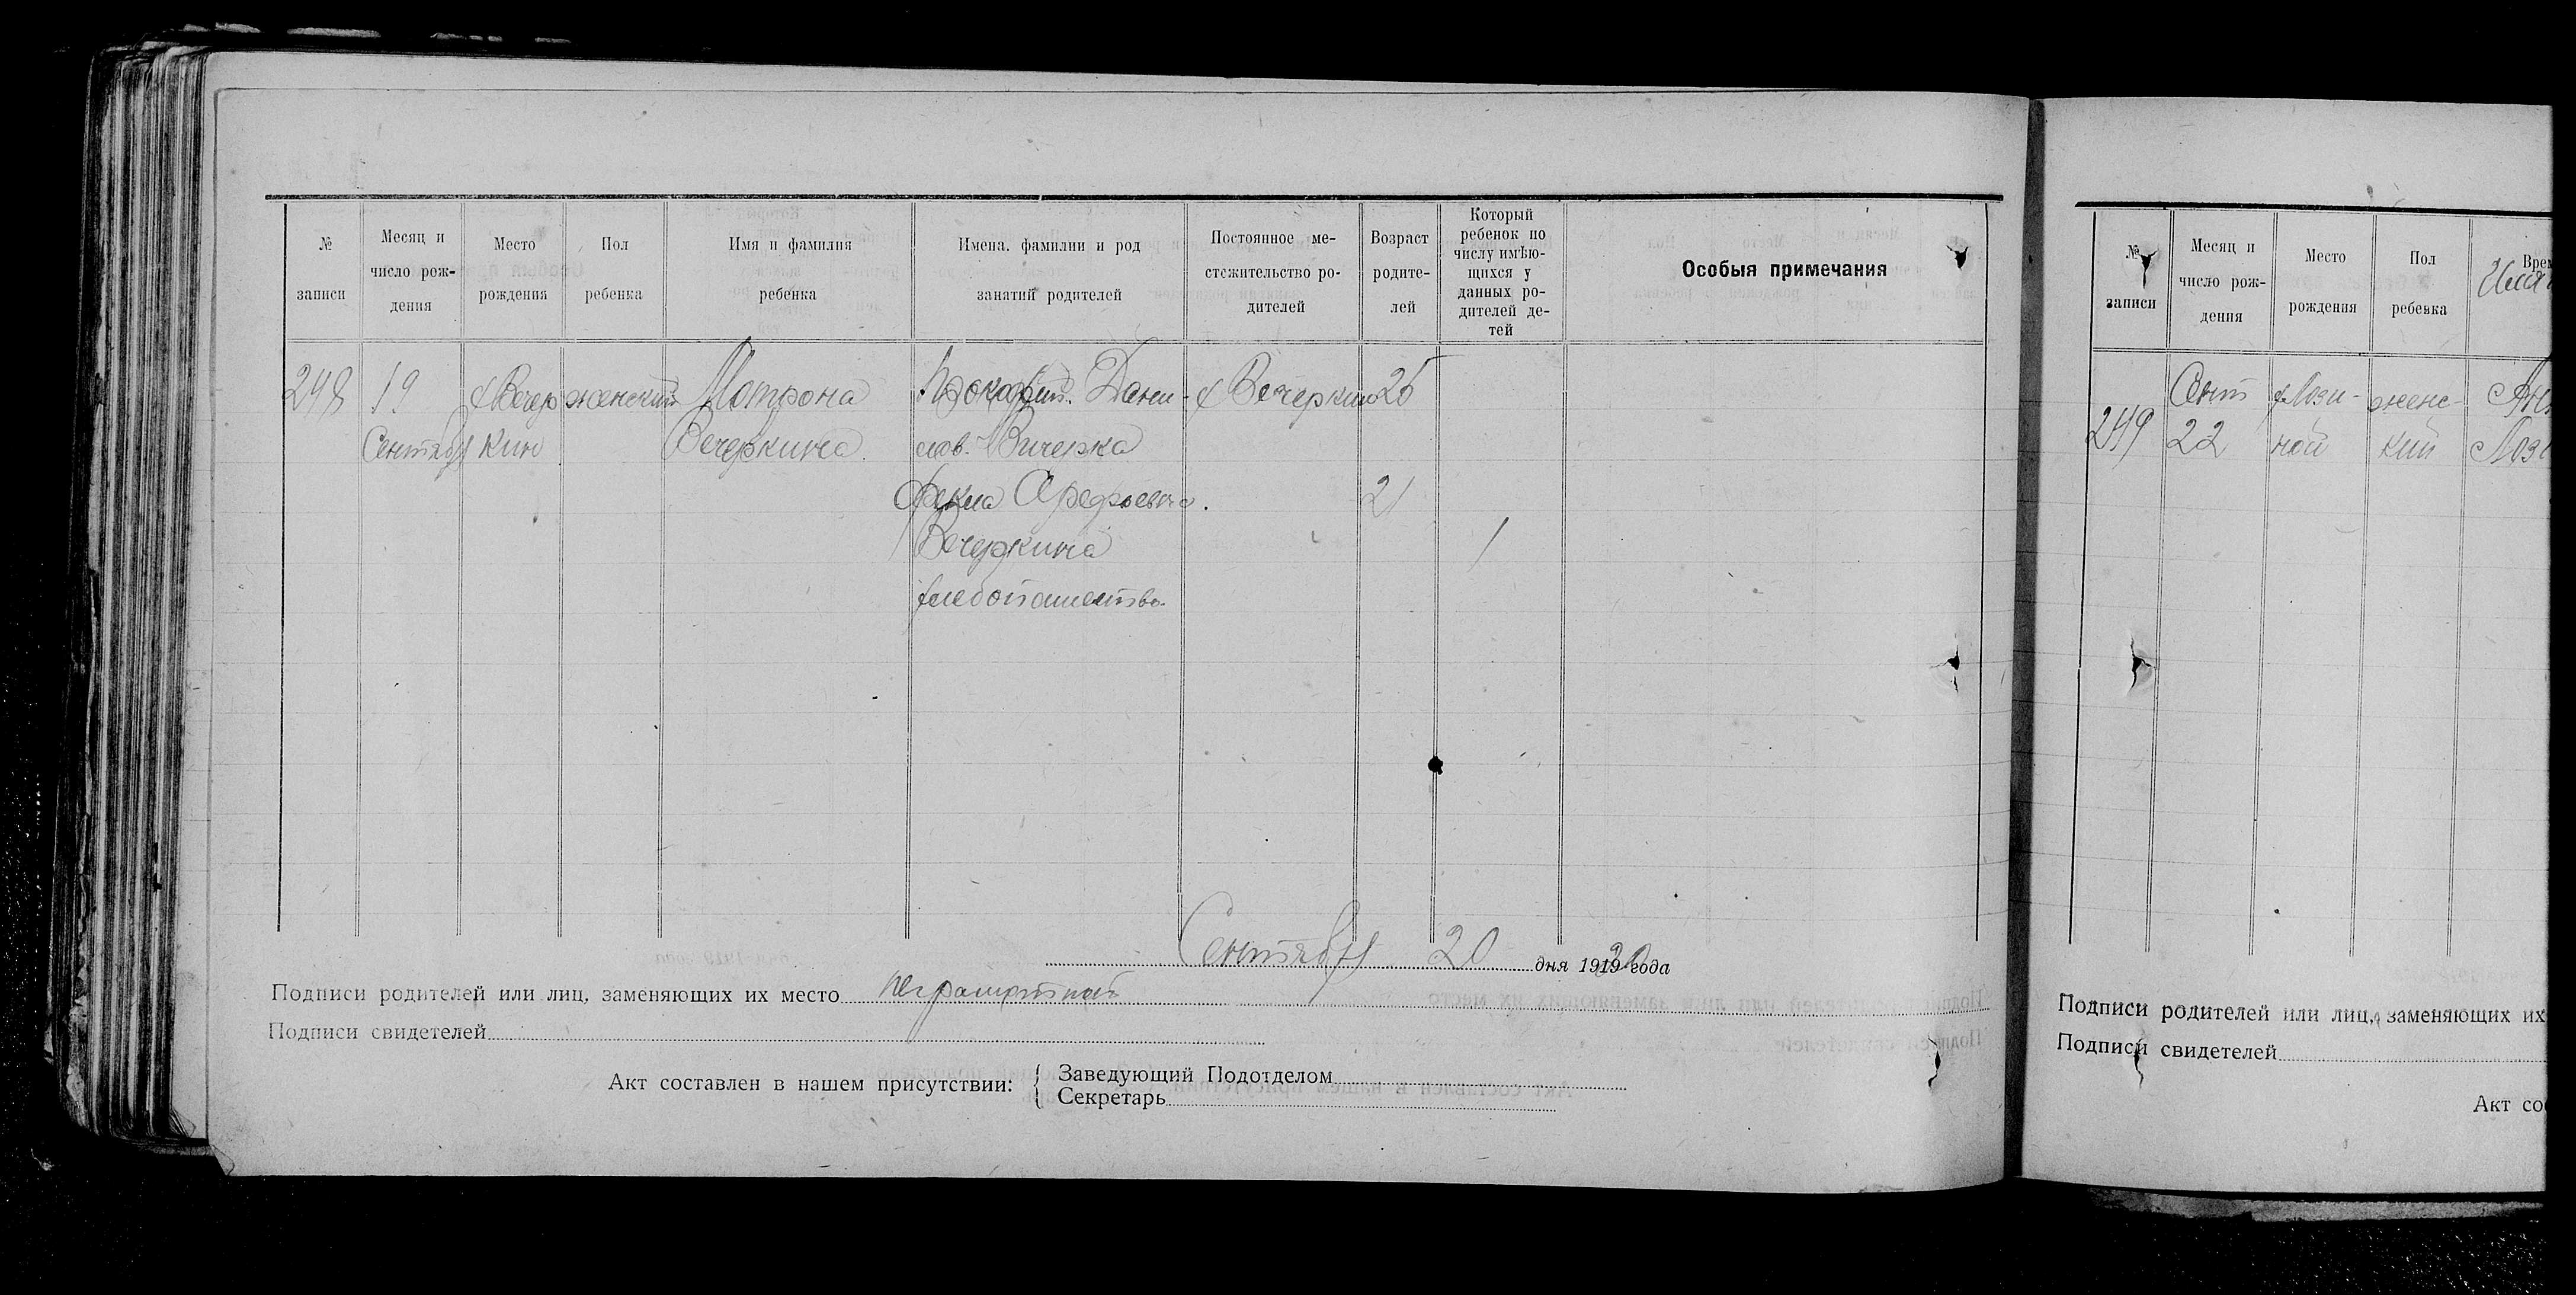 № записи
Месяц и число рож-дения
Место рождения
Пол ребенка
Имя и фамилия ребенка
Имена, фамилии и род занятий родителей
Постоянное ме-стожительство ро-дителей
Возраст родите-лей
Который ребенок по числу имѣю-щихся у данных ро-дителей де-тей
Особыя примечания
248 19 х Вечер женский Мотрона Прокофий Дани- х Вечеркин 25
Сентябр кин Вечеркина лов. Вичерка
Фекла Арефьевна. 21
Вечеркина 1
хлебопашество
Сентября 20 дня 1919 20 года
Подписи родителей или лиц, заменяющих их место неграмотной
Подписи свидетелей
Акт составлен в нашем присутствии: { Заведующий Подотделом
Секретарь
№ записи
Месяц и число рож-дения
Место рождения
Пол ребенка
Сент х Лози- женс-
249 22 ной кий
Подписи родителей или лиц, заменяющих их
Подписи свидетелей
Акт со